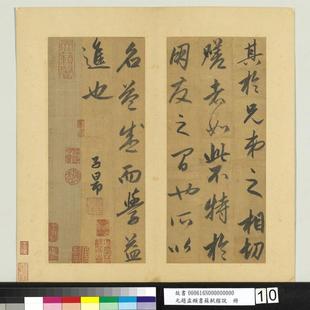 其於兄弟之相切
磋者如此不特於
朋友之間也所以
名益盛而學益
進也
子昂
故書 000616N000000000
元趙孟頫書蘇軾稼說 冊
10